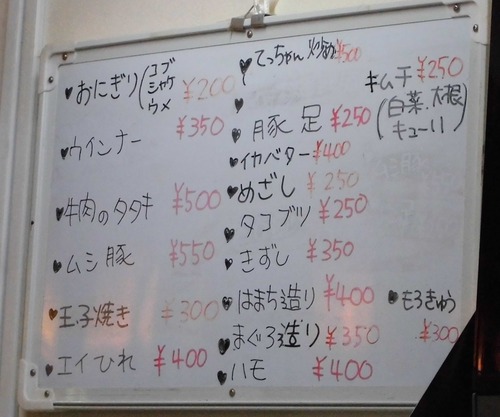 ♥おにぎり(コブ シャケ ウメ ¥200
♥ウインナー ¥350
♥牛肉のタタキ ¥500
♥ムシ豚 ¥550
♥玉子焼き ¥300
♥エイひれ ¥400
♥てっちゃん炒め¥500
♥豚足 ¥250
♥イカバター¥400
♥めざし ¥250
♥タコブツ ¥250
♥きずし ¥350
♥はまち造り ¥400
♥まぐろ造り ¥350
♥ハモ ¥400
キムチ ¥250
(白菜.大根
キューリ)
♥もろきゅう
¥300